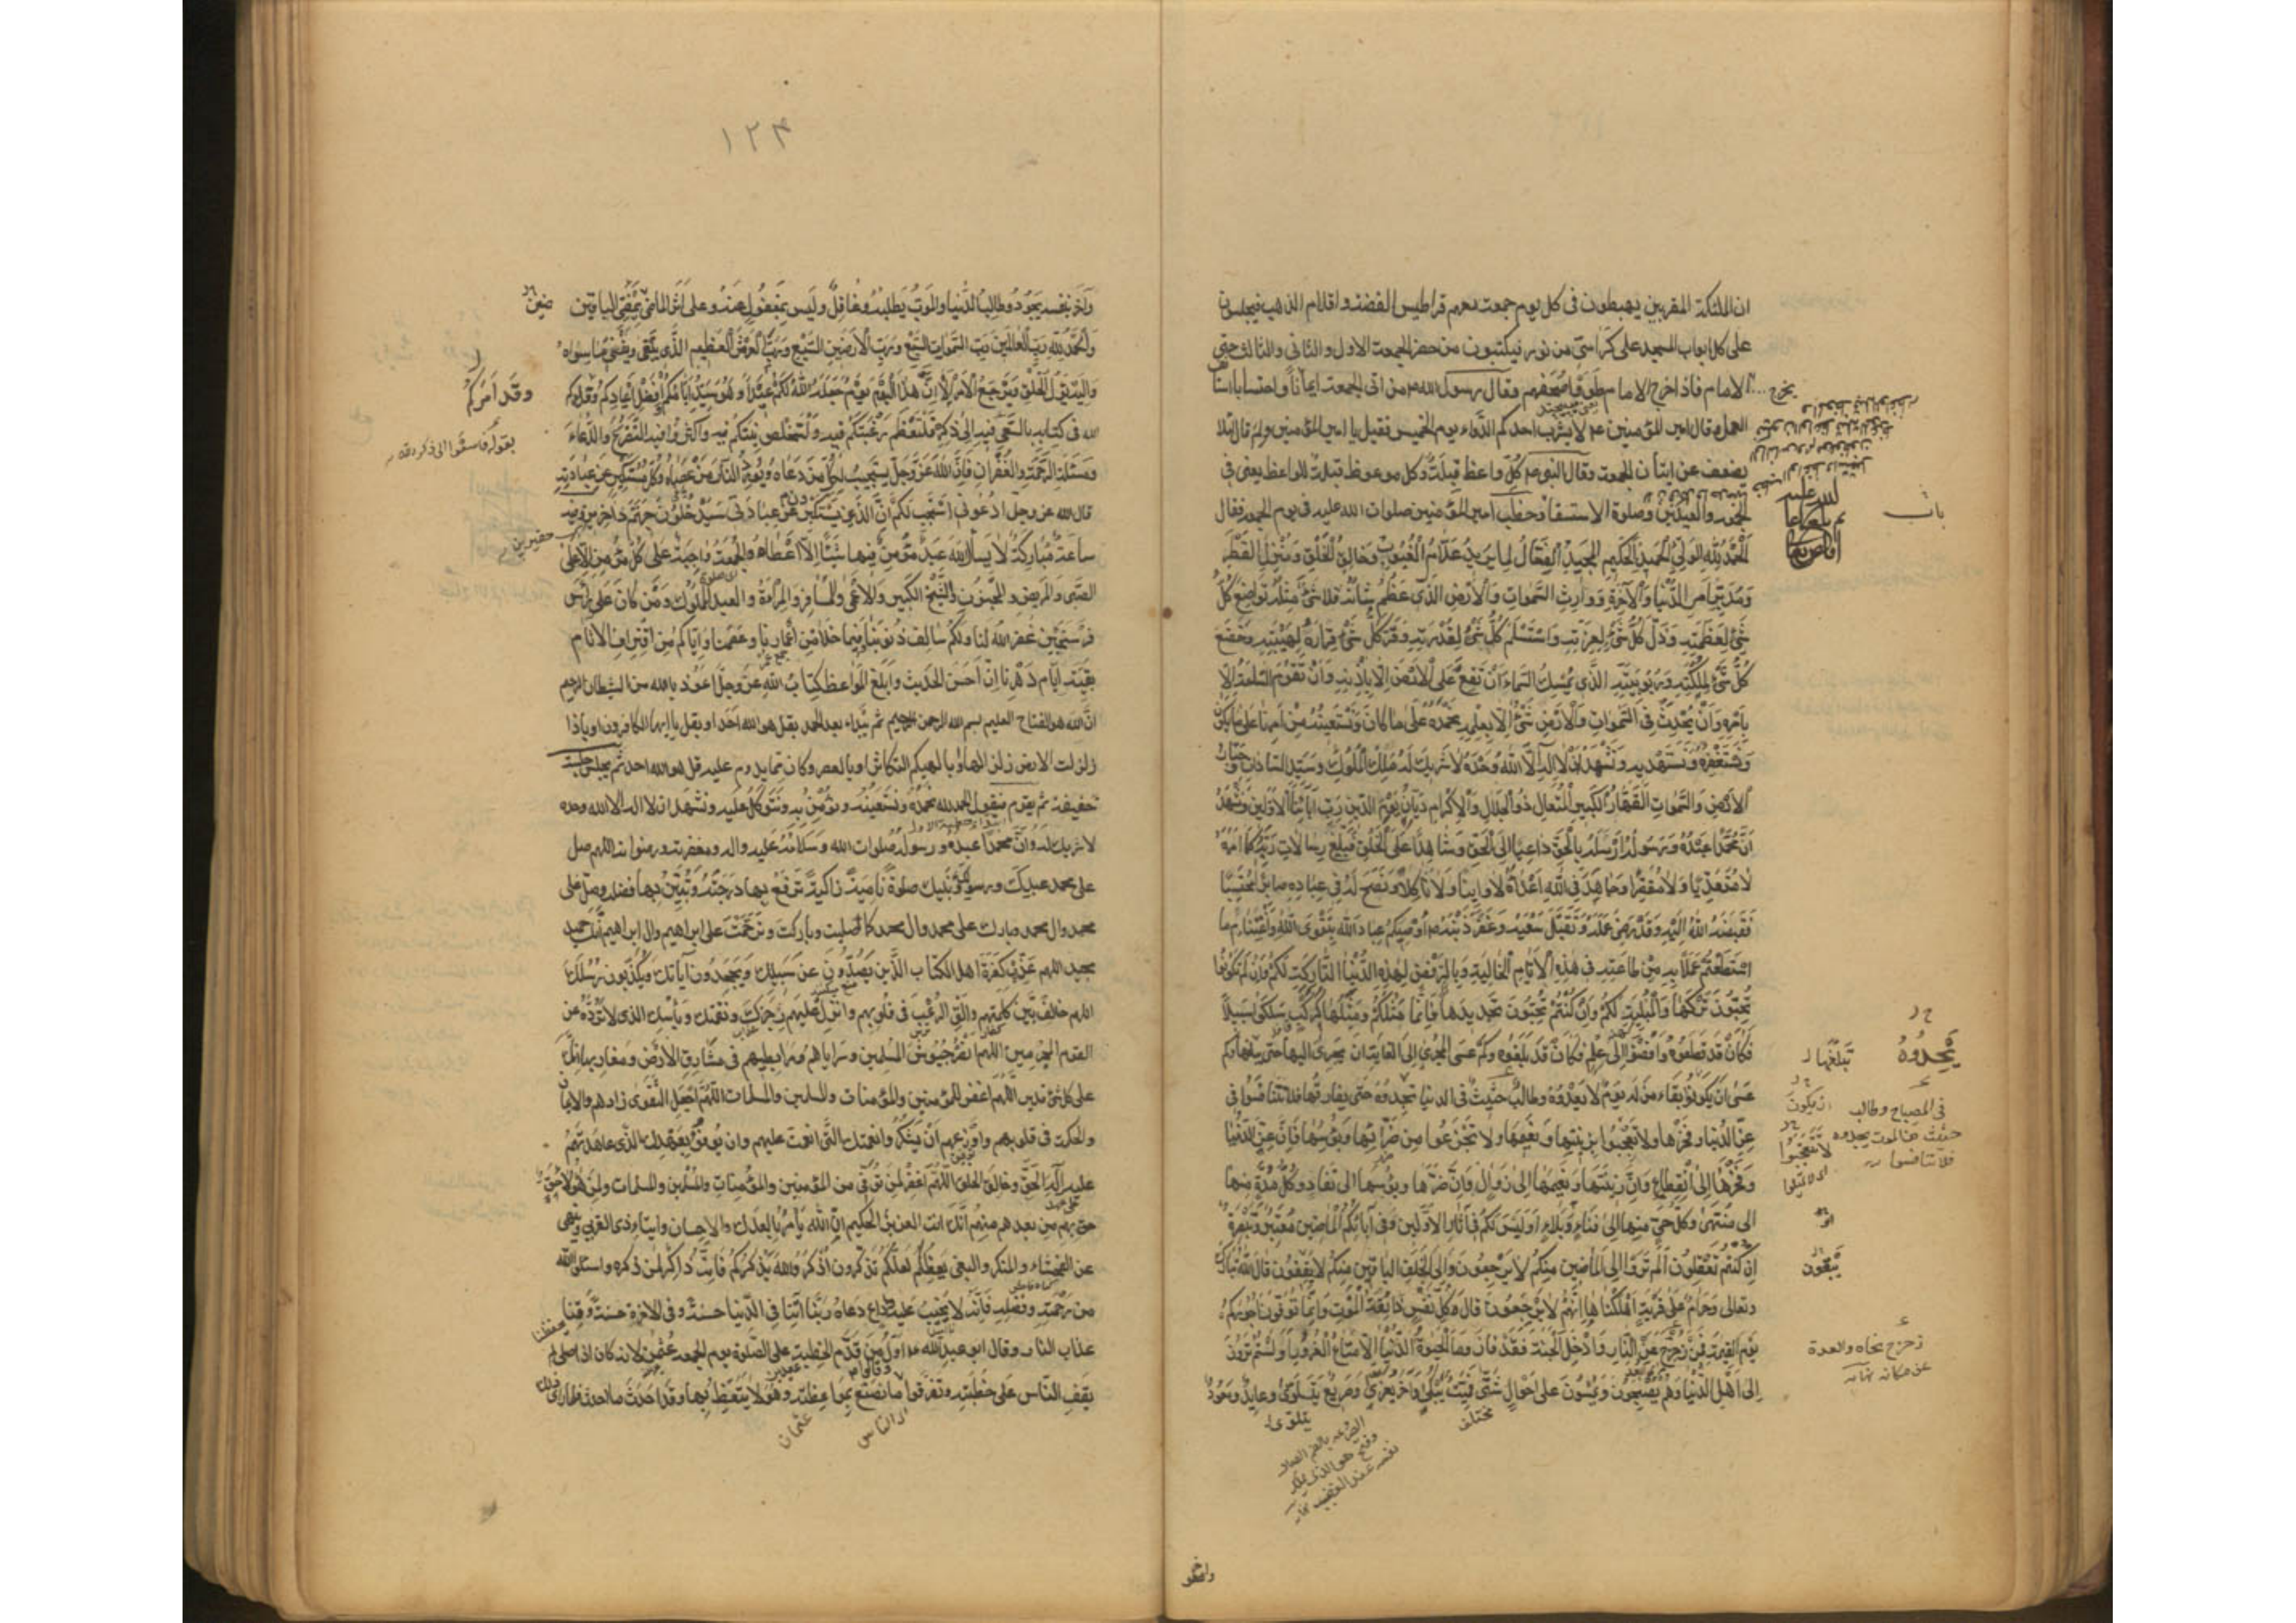 ان الملئكة المقربين يهبطون فى كل يوم جمعة معهم قراطيس الفضة واقلام الذهب فيجلسون
على كل ابواب المسجد على كراسى من نور فيكتبون من حضر الجمعة الاول والثانى والثالث حتى يخرج
الامام فاذا خرج الامام طووا صحفهم وقال رسول الله ص من اتى الجمعة ايمانا واحتسابا استانف
العمل وقال امير المؤمنين ع لا يشرب احدكم الدواء يوم الخميس فقيل يا امير المؤمنين ولم قال لئلا
يضعف عن اتيان الجمعة وقال النبى ص كل واعظ قبلة وكل موعوظ قبلة للواعظ يعنى فى
الجمعة والعيدين وصلوة الاستسقاء وخطب امير المؤمنين صلوات الله عليه فى يوم الجمعة فقال
باب
اَلْحَمْدُ لِلّهِ الوَلِىِّ الْحَمِيدِ الْحَكِيمِ الْمَجِيدِ الْفَعَّالِ لِمَا يُرِيدُ عَلَّامِ الْغُيُوبِ وَخَالِقِ الْخَلْقِ وَمُنْزِلِ القَطْرِ
وَمُدَبِّرِ اَمْرِ الدُّنْيَا وَالْآخِرَةِ وَوَارِثِ السَّمَوَاتِ وَالْاَرْضِ الَّذِى عَظُمَ شَانُهُ فَلَا شَىْءَ مِثْلُهُ تَوَاضَعَ كُلُّ
شَىْءٍ لِعَظَمَتِهِ وَذَلَّ كُلُّ شَىْءٍ لِعِزَّتِهِ وَاسْتَسْلَمَ كُلُّ شَىْءٍ لِقُدْرَتِهِ وَقَرَّ كُلُّ شَىْءٍ قَرَارَهُ لِهَيْبَتِهِ وَخَضَعَ
كُلُّ شَىْءٍ لِمُلْكِهِ وَرُبُوبِيَّتِهِ الَّذِى يُمْسِكُ السَّمَاءَ اَنْ تَقَعَ عَلَى الْاَرْضِ اِلَّا بِاِذْنِهِ وَاَنْ تَقُومَ السَّاعَةُ اِلَّا
بِاَمْرِهِ وَاَنْ يَحْدُثَ فِى السَّمَوَاتِ وَالْاَرْضِ شَىْءٌ اِلَّا بِعِلْمِهِ نَحْمَدُهُ عَلَى مَا كَانَ وَنَسْتَعِينُهُ مِنْ اَمْرِنَا عَلَى مَا يَكُونُ
وَنَسْتَغْفِرُهُ وَنَسْتَهْدِيهِ وَنَشْهَدُ اَنْ لَا اِلَهَ اِلَّا اللهُ وَحْدَهُ لَا شَرِيكَ لَهُ مَلِكُ الْمُلُوكِ وَسَيِّدُ السَّادَاتِ وَجَبَّارُ
الْاَرْضِ وَالسَّمَوَاتِ الْقَهَّارُ الْكَبِيرُ الْمُتَعَالِ ذُو الْجَلَالِ وَالْاِكْرَامِ دَيَّانُ يَوْمِ الدِّينِ رَبُّ آبَائِنَا الْاَوَّلِينَ وَنَشْهَدُ
اَنَّ مُحَمَّدًا عَبْدُهُ وَرَسُولُهُ اَرْسَلَهُ بِالْحَقِّ دَاعِيًا اِلَى الْحَقِّ وَشَاهِدًا عَلَى الْخَلْقِ فَبَلَّغَ رِسَالَاتِ رَبِّهِ كَمَا اَمَرَهُ
لَا مُتَعَدِّيًا وَلَا مُقَصِّرًا وَجَاهَدَ فِى اللهِ اَعْدَاءَهُ لَا وَانِيًا وَلَا نَاكِلًا وَنَصَحَ لَهُ فِى عِبَادِهِ صَابِرًا مُحْتَسِبًا
فَقَبَضَهُ اللهُ اِلَيْهِ وَقَدْ رَضِىَ عَمَلَهُ وَتَقَبَّلَ سَعْيَهُ وَغَفَرَ ذَنْبَهُ ص اُوصِيكُمْ عِبَادَ اللهِ بِتَقْوَى اللهِ وَاغْتِنَامِ مَا
اسْتَطَعْتُمْ عَمَلًا بِهِ مِنْ طَاعَتِهِ فِى هَذِهِ الْاَيَّامِ الْخَالِيَةِ وَبِالرَّفْضِ لِهَذِهِ الدُّنْيَا التَّارِكَةِ لَكُمْ وَاِنْ لَمْ تَكُونُوا
تُحِبُّونَ تَرْكَهَا وَالْمُبْلِيَةِ لَكُمْ وَاِنْ كُنْتُمْ تُحِبُّونَ تَجْدِيدَهَا فَاِنَّمَا مَثَلُكُمْ وَمَثَلُهَا كَرَكْبٍ سَلَكُوا سَبِيلًا
فَكَاَنْ قَدْ قَطَعُوهُ وَاَفْضَوْا اِلَى عَلَمٍ فَكَاَنْ قَدْ بَلَغُوهُ وَكَمْ عَسَى الْمُجْرِى اِلَى الغَايَةِ اَنْ يَجْرِىَ اِلَيْهَا حَتَّى يَبْلُغَهَا وَكَمْ
عَسَى اَنْ يَكُونَ بَقَاءُ مَنْ لَهُ يَوْمٌ لَا يَعْدُوهُ وَطَالِبٌ حَثِيثٌ فِى الدنيا يحدوه حَتَّى يفارقها فلا تتنافسوا فى
عِزِّ الدُّنْيَا وَفَخْرِهَا وَلَا تُعْجَبُوا بِزِينَتِهَا وَنَعِيمِهَا وَلَا تَجْزَعُوا مِنْ ضَرَّائِهَا وَبُؤْسِهَا فَاِنَّ عِزَّ الدُّنْيَا
وَفَخْرَهَا اِلَى انْقِطَاعٍ وَاِنَّ زِينَتَهَا وَنَعِيمَهَا اِلَى زَوَالٍ وَاِنَّ ضَرَّهَا وَبُؤْسَهَا اِلَى نَفَادٍ وَكُلُّ مُدَّةٍ مِنْهَا
اِلَى مُنْتَهَى وَكُلُّ حَىٍّ مِنْهَا اِلَى فَنَاءٍ وَبَلَاءٍ اَوَلَيْسَ لَكُمْ فِى آثَارِ الْاَوَّلِينَ وَفِى آبَائِكُمُ الْمَاضِينَ مُعْتَبَرٌ وَتَبْصِرَةٌ
اِنْ كُنْتُمْ تَعْقِلُونَ اَلَمْ تَرَوْا اِلَى الْمَاضِينَ مِنْكُمْ لَا يَرْجِعُونَ وَاِلَى الْخَلَفِ الْبَاقِينَ مِنْكُمْ لَا يَقِفُونَ قَالَ اللهُ تَبَارَكَ
وَتَعَالَى وَحَرَامٌ عَلَى قَرْيَةٍ اَهْلَكْنَاهَا اَنَّهُمْ لَا يَرْجِعُونَ وَقَالَ كُلُّ نَفْسٍ ذَائِقَةُ الْمَوْتِ وَاِنَّمَا تُوَفَّوْنَ اُجُورَكُمْ
يَوْمَ الْقِيَمَةِ فَمَنْ زُحْزِحَ عَنِ النَّارِ وَاُدْخِلَ الْجَنَّةَ فَقَدْ فَازَ وَمَا الْحَيَوةُ الدُّنْيَا اِلَّا مَتَاعُ الْغُرُورِ اَوَلَسْتُمْ تَرَوْنَ
اِلَى اَهْلِ الدُّنْيَا وَهُمْ يُصْبِحُونَ وَيُمْسُونَ عَلَى اَحْوَالٍ شَتَّى فَمَيِّتٌ يُبْكَى وَآخَرُ يُعَزَّى وَصَرِيعٌ يَتَلَوَّى وَعَائِدٌ وَيَعُودُ
يَحْدُوهُ
تبلغها
ان يكون
فى المصباح وطالب
حثيث من الموت يحدوه
فلا تتنافسوا
لا تعجبوا
يبقون
زحزح نحاه وابعده
عن مكانه
مختلف
يتلوى
١٢٣
وَآخَرُ بِنَفْسِهِ يَجُودُ وَطَالِبُ الدُّنْيَا وَالْمَوْتُ يَطْلُبُهُ وَغَافِلٌ وَلَيْسَ بِمَغْفُولٍ عَنْهُ وَعَلَى اَثَرِ الْمَاضِى يَمْضِى الْبَاقِينَ
وَالْحَمْدُ لِلّهِ رَبِّ الْعَالَمِينَ رَبِّ السَّمَوَاتِ السَّبْعِ وَرَبِّ الْاَرَضِينَ السَّبْعِ وَرَبِّ الْعَرْشِ الْعَظِيمِ الَّذِى يَبْقَى وَيَفْنَى مَا سِوَاهُ
وَاِلَيْهِ يَؤُلُ الْخَلْقُ وَيَرْجِعُ الْاَمْرُ اَلَا اِنَّ هَذَا الْيَوْمَ يَوْمٌ جَعَلَهُ اللهُ لَكُمْ عِيدًا وَهُوَ سَيِّدُ اَيَّامِكُمْ وَاَفْضَلُ اَعْيَادِكُمْ وَقَدْ اَمَرَكُمُ
الله فى كتابه بالسعى فيه اِلَى ذِكْرِهِ فَلْتَعْظُمْ رَغْبَتُكُمْ فِيهِ وَلْتَخْلُصْ نِيَّتُكُمْ فِيهِ وَاَكْثِرُوا فِيهِ التَّضَرُّعَ وَالدُّعَاءَ
وَمَسْئَلَةَ الرَّحْمَةِ وَالْغُفْرَانِ فَاِنَّ اللهَ عَزَّ وَجَلَّ يَسْتَجِيبُ لِكُلِّ مَنْ دَعَاهُ وَيُورِدُ النَّارَ مَنْ عَصَاهُ وَكُلَّ مُسْتَكْبِرٍ عَنْ عِبَادَتِهِ
قال الله عز وجل ادْعُونِى اَسْتَجِبْ لَكُمْ اِنَّ الَّذِينَ يَسْتَكْبِرُونَ عَنْ عِبَادَتِى سَيَدْخُلُونَ جَهَنَّمَ دَاخِرِينَ وفيه
سَاعَةٌ مُبَارَكَةٌ لَا يَسْأَلُ اللهَ عَبْدٌ مُؤْمِنٌ فِيهَا شَيْئًا اِلَّا اَعْطَاهُ وَالْجُمُعَةُ وَاجِبَةٌ عَلَى كُلِّ مُؤْمِنٍ اِلَّا عَلَى
الصَّبِىِّ وَالْمَرِيضِ وَالْمَجْنُونِ وَالشَّيْخِ الْكَبِيرِ وَالْاَعْمَى وَالْمُسَافِرِ وَالْمَرْأَةِ وَالْعَبْدِ الْمَمْلُوكِ وَمَنْ كَانَ عَلَى رَأْسِ
فَرْسَخَيْنِ غَفَرَ اللهُ لَنَا وَلَكُمْ سَالِفَ ذُنُوبِنَا فِيمَا خَلَا مِنْ اَعْمَارِنَا وَعَصَمَنَا وَاِيَّاكُمْ مِنِ اقْتِرَافِ الْآثَامِ
بَقِيَّةَ اَيَّامِ دَهْرِنَا اِنَّ اَحْسَنَ الْحَدِيثِ وَاَبْلَغَ الْمَوَاعِظِ كِتَابُ اللهِ عَزَّ وَجَلَّ اَعُوذُ بالله من الشيطان الرجيم
ان الله هو الفتاح العليم بسم الله الرحمن الرحيم ثم يبدأ بعد الحمد بقل هو الله احد او بقل يا ايها الكافرون او باذا
زلزلت الارض زلزالها او بالهيكم التكاثر او بالعصر وكان مما يدوم عليه قل هو الله احد ثم يجلس جلسة
خفيفة ثم يقوم فيقول الحمد لله نَحْمَدُهُ وَنَسْتَعِينُهُ وَنُؤْمِنُ بِهِ وَنَتَوَكَّلُ عَلَيْهِ وَنَشْهَدُ اَنْ لا اله الا الله وحده
لا شريك له وَاَنَّ مُحَمَّدًا عبده ورسوله صلوات الله وسلامه عليه واله ومغفرته ورضوانه اللهم صل
على محمد عبدك ورسولك ونبيك صلوة نامية زاكية ترفع بها درجته وتبين بها فضله وصل على
محمد وال محمد وبارك على محمد وال محمد كما صليت وباركت وترحمت على ابراهيم وال ابراهيم انك حميد
مجيد اللهم عذب كفرة اهل الكتاب الذين يصدون عن سبيلك ويجحدون آياتك ويكذبون رسلك
اللهم خالف بين كلمتهم والق الرعب فى قلوبهم وانزل عليهم رجزك ونقمتك وبأسك الذى لا ترده عن
القوم المجرمين اللهم انصر جيوش المسلمين وسراياهم ومرابطيهم فى مشارق الارض ومغاربها انك
على كل شئ قدير اللهم اغفر للمؤمنين والمؤمنات والمسلمين والمسلمات اللهم اجعل التقوى زادهم والايمان
والحكمة فى قلوبهم واوزعهم ان يشكروا نعمتك التى انعمت عليهم وان يوفوا بعهدك الذى عاهدتهم
عليه اله الحق وخالق الخلق اللهم اغفر لمن توفى من المؤمنين والمؤمنات والمسلمين والمسلمات ولمن هو لاحق
بهم من بعدهم منهم انك انت العزيز الحكيم ان الله يأمر بالعدل والاحسان وايتاء ذى القربى وينهى
عن الفحشاء والمنكر والبغى يعظكم لعلكم تذكرون اذكروا الله يذكركم فانه ذاكر لمن ذكره واسئلوا الله
من رحمته وفضله فانه لا يخيب عليه داع دعاه ربنا اتنا فى الدنيا حسنة وفى الاخرة حسنة وقنا
عذاب النار وقال ابو عبد الله ع اول من قدم الخطبة على الصلوة يوم الجمعة عثمن لانه كان اذا صلى لم
يقف الناس على خطبته وتفرقوا وقالوا ما نصنع بمواعظه وهو لا يتعظ بها وقد احدث ما احدث فلما راى ذلك
وَقَدْ اَمَرَكُمُ
بقوله فاسعوا الى ذكر الله
حقيرين
الناس
عثمان